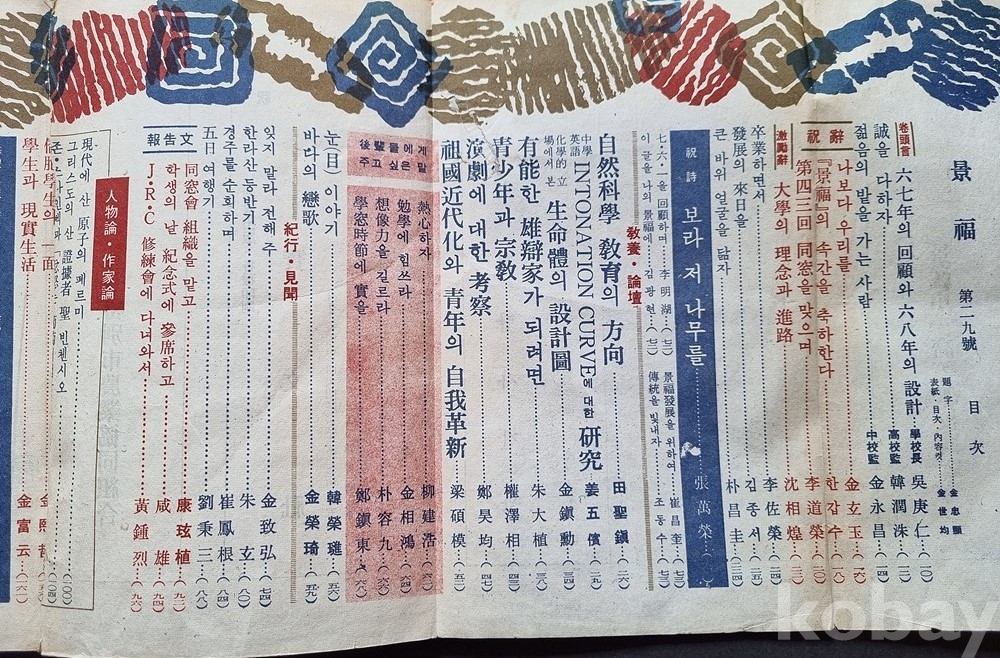 景福 第二九號 目次
題字 金忠顯
表紙・目次・內容컷 金世均
卷頭言 六七年의 回顧와 六八年의 設計 學校長 吳庚仁 (一〇)
誠을 다하자 高校監 韓潤洙
젊음의 밭을 가는 사람 中校監 金永昌 (一四)
祝辭
나보다 우리를 金玄玉
『景福』의 속간을 축하한다 한갑수
第四三回 同窓을 맞으며 李道榮
激勵辭 大學의 理念과 進路 沈相煌
卒業하면서 李佐榮
發展의 來日을 김종서
큰 바위 얼굴을 닮자 朴昌圭 (二四)
祝詩 보라 저 나무를 張萬榮
七・六・一을 回顧하며 李明湖
이 글을 나의 景福에 김광헌
景福發展을 위하여 崔昌奎
傳統을 빛내자 조동수
敎養・論壇
自然科學 敎育의 方向 田聖鎭 (二六)
中學英語 INTONATION CURVE에 대한 硏究 姜五儐 (二九)
化學的 立場에서 본 生命體의 設計圖 金鎭勳 (三四)
有能한 雄辯家가 되려면 朱大植 (三八)
靑少年과 宗敎 權澤相 (四三)
演劇에 대한 考察 鄭昊均 (四七)
祖國近代化와 靑年의 自我革新 梁碩模 (五二)
後輩들에게 주고 싶은 말
熱心하자 柳建浩
勉學에 힘쓰라 金相鴻
想像力을 길르라 朴容九
學窓時節에 實을 鄭鎭東
눈(目) 이야기 韓榮璡 (五六)
바다의 戀歌 金榮琦 (五九)
紀行・見聞
잊지 말라 전해 주 金致弘 (七四)
한라산 등반기 朱玄 (八〇)
경주를 순회하며 崔鳳根 (八四)
五日 여행기 劉秉三 (八八)
報告文
同窓會 組織을 맡고 康玹植 (九二)
학생의 날 紀念式에 參席하고 咸雄 (九四)
J・R・C 修練會에 다녀와서 黃鍾烈 (九六)
人物論・作家論
現代에 산 原子의 페르미
그리스도의 산 證據者 聖 빈첸시오 (一〇〇)
學生의 一面
學生과 現實生活 金富云
kobay